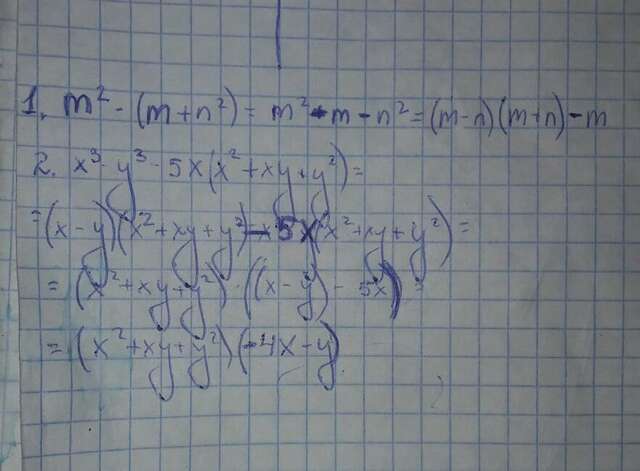 1. m² - (m+n²) = m² - m - n² = (m-n)(m+n) - m
2. x³ - y³ - 5x(x² + xy + y²) =
= (x - y)(x² + xy + y²) - 5x(x² + xy + y²) =
= (x² + xy + y²) · ((x - y) - 5x) =
= (x² + xy + y²)(-4x - y)